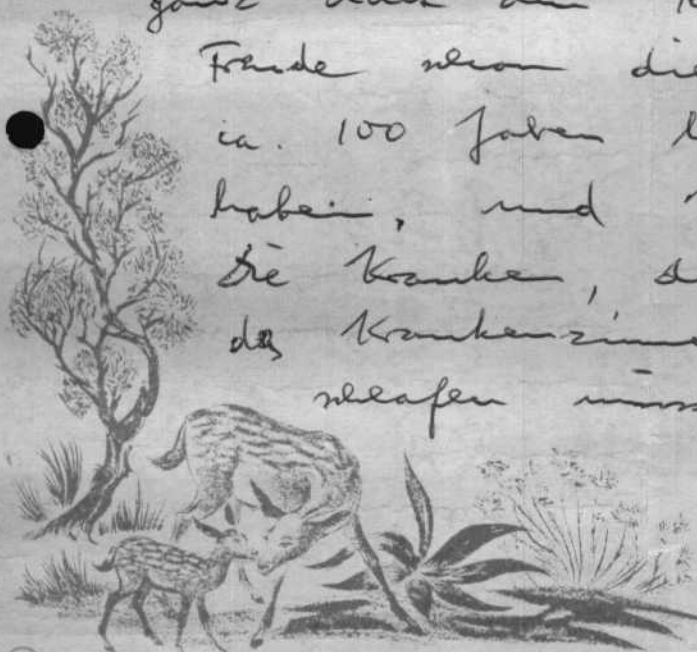 ganz
Freude schon die
ca. 100 Jahren
haben, und
Die Kranken, d
des Krankenzimme
schlafen müss